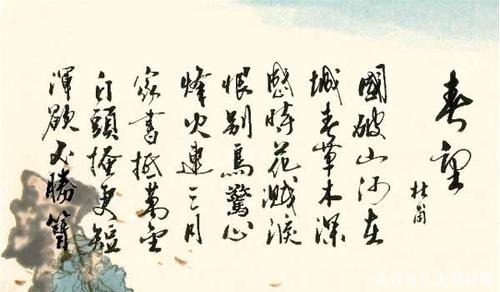 春望
杜甫
國破山河在
城春草木深
感時花濺淚
恨别鳥驚心
烽火連三月
家書抵萬金
白頭搔更短
渾欲不勝簪
快传号/无语笑言